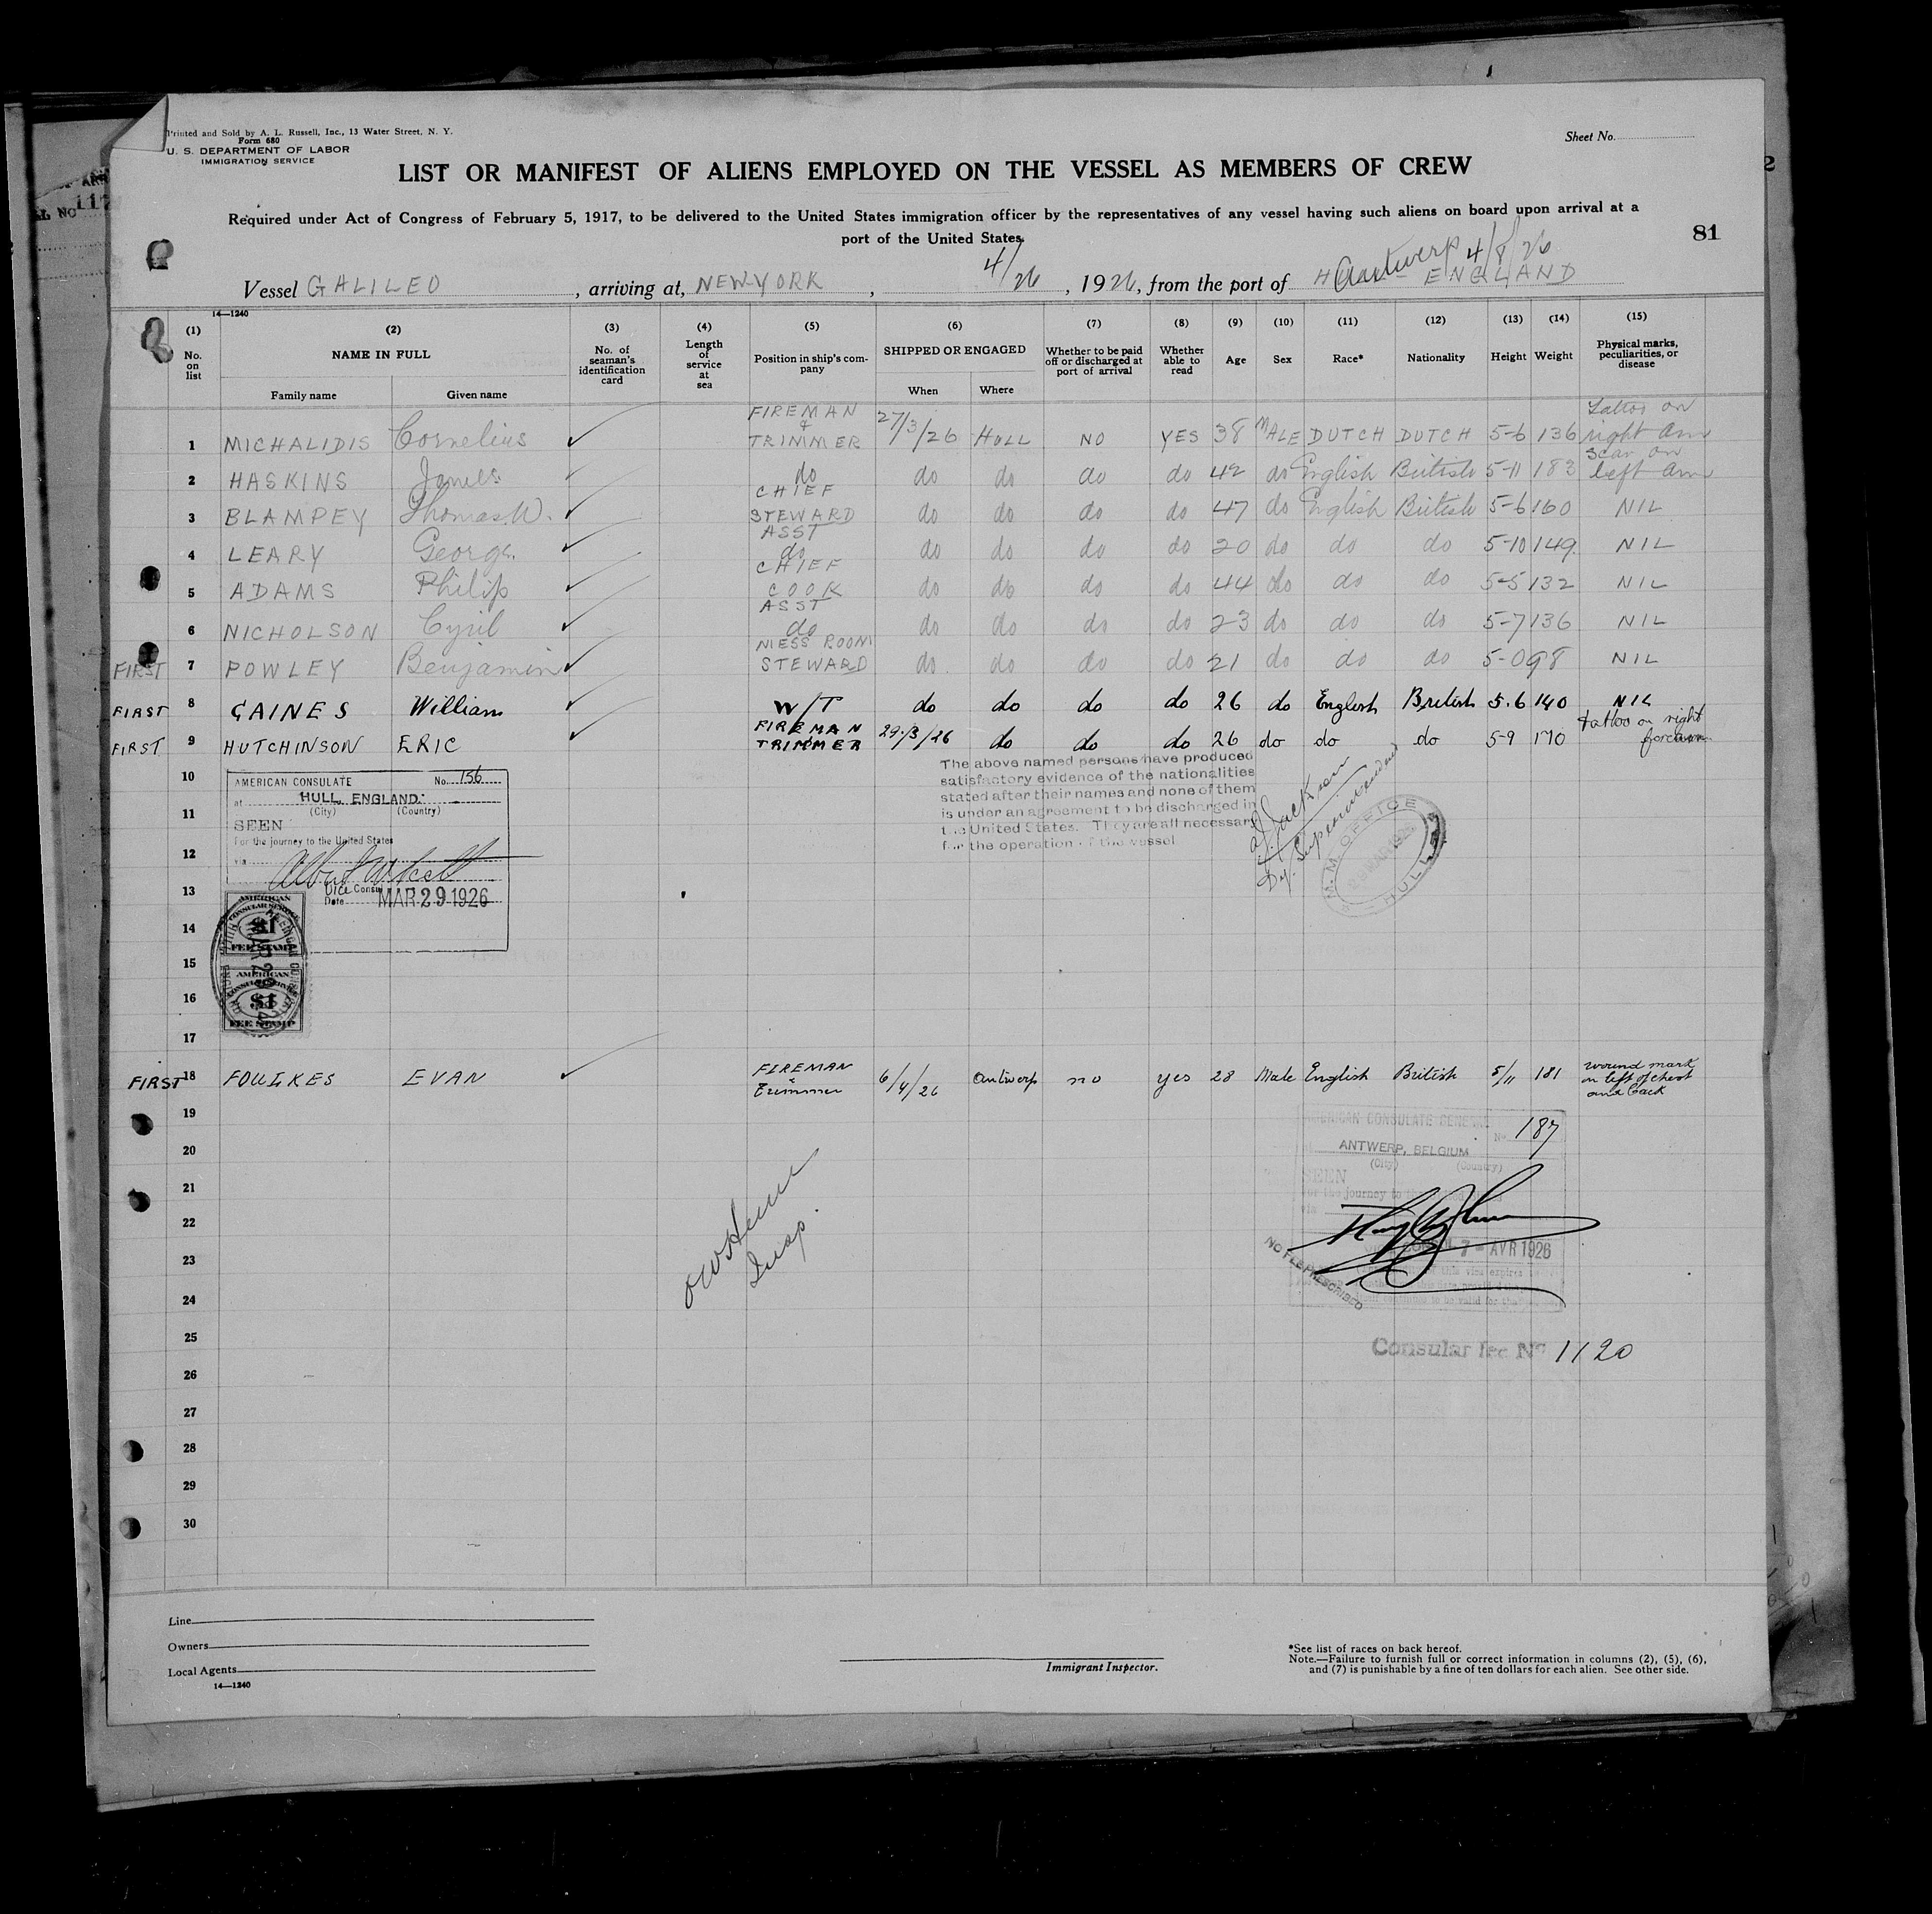 Printed and Sold by A. L. Russell, Inc., 13 Water Street, N. Y.
Form 680
U. S. DEPARTMENT OF LABOR
IMMIGRATION SERVICE
Sheet No.
LIST OR MANIFEST OF ALIENS EMPLOYED ON THE VESSEL AS MEMBERS OF CREW
Required under Act of Congress of February 5, 1917, to be delivered to the United States immigration officer by the representatives of any vessel having such aliens on board upon arrival at a
port of the United States.
81
Vessel GALILEO, arriving at, NEW YORK, 4/26, 1926, from the port of Antwerp 4/8/26 ENGLAND
14—1240
(1) (2) (3) (4) (5) (6) (7) (8) (9) (10) (11) (12) (13) (14) (15)
No. on list NAME IN FULL No. of seaman's identification card Length of service at sea Position in ship's company SHIPPED OR ENGAGED Whether to be paid off or discharged at port of arrival Whether able to read Age Sex Race* Nationality Height Weight Physical marks, peculiarities, or disease
Family name Given name When Where
1 MICHALIDIS Cornelius FIREMAN & TRIMMER 27/3/26 HULL NO YES 38 MALE DUTCH DUTCH 5-6 136 Tattoo on right arm
2 HASKINS James do do do do do 42 do English British 5-11 183 Scar on left arm
3 BLAMPEY Thomas W. CHIEF STEWARD do do do do 47 do English British 5-6 160 NIL
4 LEARY George ASST do do do do do 20 do do do 5-10 149 NIL
5 ADAMS Philip CHIEF COOK do do do do 44 do do do 5-5 132 NIL
6 NICHOLSON Cyril ASST do do do do do 23 do do do 5-7 136 NIL
FIRST 7 POWLEY Benjamin MESS ROOM STEWARD do do do do 21 do do do 5-0 98 NIL
FIRST 8 GAINES William W/T do do do do 26 do English British 5.6 140 NIL
FIRST 9 HUTCHINSON ERIC FIREMAN TRIMMER 29/3/26 do do do 26 do do do 5-9 170 tattoo on right forearm
10
11
12
13
14
15
16
17
AMERICAN CONSULATE No. 156
at HULL, ENGLAND.
(City) (Country)
SEEN
For the journey to the United States
via
Vice Consul
Date MAR 29 1926
AMERICAN
CONSULAR SERVICE
$1
FEE STAMP
AMERICAN
CONSULAR SERVICE
$1
FEE STAMP
The above named persons have produced
satisfactory evidence of the nationalities
stated after their names and none of them
is under an agreement to be discharged in
the United States. They are all necessary
for the operation of the vessel
Jackson
Dy. Superintendent
M. M. OFFICE
HULL
FIRST 18 FOULKES EVAN FIREMAN & Trimmer 6/4/26 Antwerp no yes 28 Male English British 5/11 181 wound mark on left of chest and back
19
20
21
22
23
24
25
26
27
28
29
30
Insp.
AMERICAN CONSULATE GENERAL
No. 187
ANTWERP, BELGIUM
(City) (Country)
SEEN
For the journey to the
via
7 - AVR 1926
NO FEE PRESCRIBED
Consular fee No 1120
Line
Owners
Local Agents
14—1240
Immigrant Inspector.
*See list of races on back hereof.
Note.—Failure to furnish full or correct information in columns (2), (5), (6),
and (7) is punishable by a fine of ten dollars for each alien. See other side.